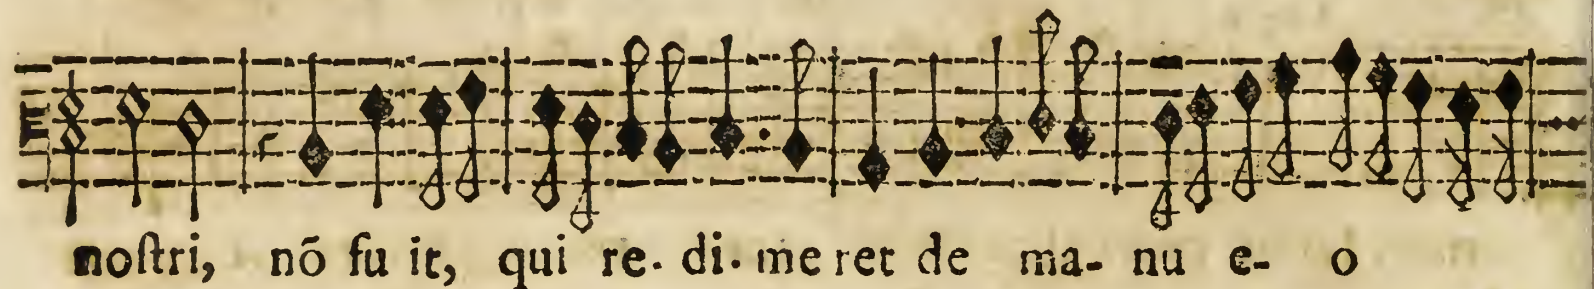 noſtri, nõ fu it, qui re. di. me ret de ma- nu e- o